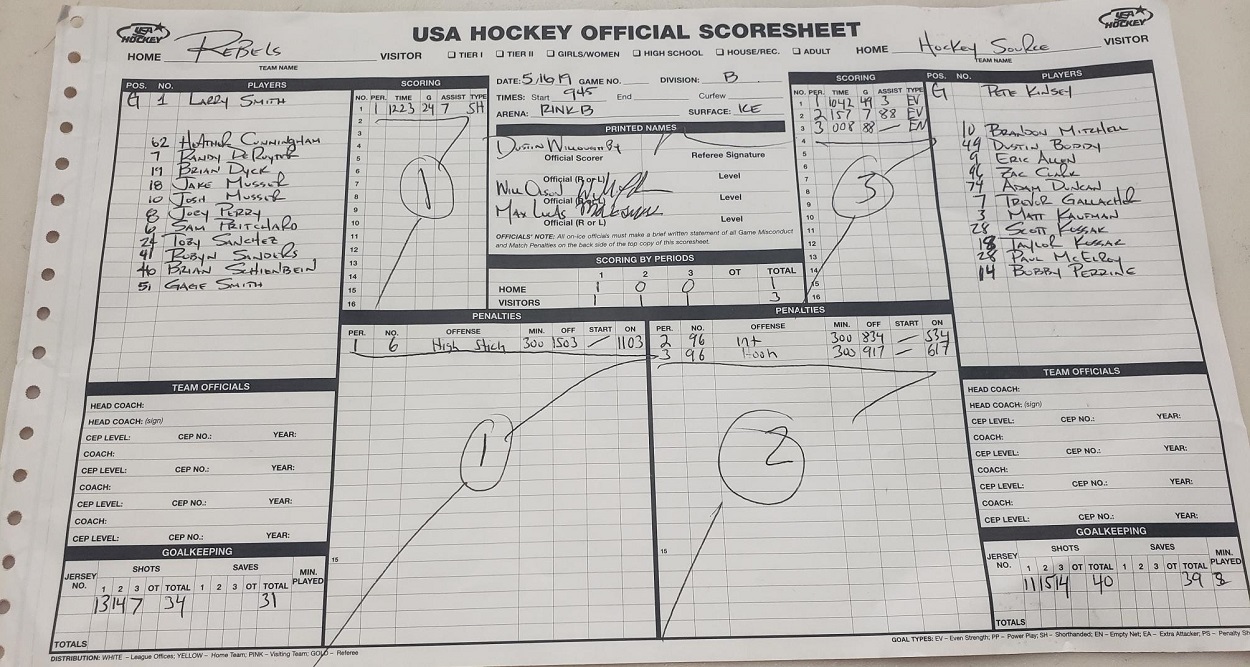 USA HOCKEY OFFICIAL SCORESHEET
USA HOCKEY
USA HOCKEY
HOME Rebels VISITOR
TEAM NAME
☐ TIER I ☐ TIER II ☐ GIRLS/WOMEN ☐ HIGH SCHOOL ☐ HOUSE/REC. ☐ ADULT
HOME Hockey Source VISITOR
TEAM NAME
POS. NO. PLAYERS
G 1 Larry Smith
62 Heather Cunningham
7 Randy DeRuyter
19 Brian Dyck
18 Jake Musser
10 Josh Musser
8 Joey Perry
6 Sam Pritchard
24 Toby Sanchez
41 Robyn Sanders
46 Brian Schienbein
51 Gage Smith
SCORING
NO. PER. TIME G ASSIST TYPE
1 1 1223 24 7 SH
2
3
4
5
6
7
8
9
10
11
12
13
14
15
16
1
DATE: 5/16/19 GAME NO. DIVISION: B
TIMES: Start 945 End Curfew
ARENA: RINK B SURFACE: ICE
PRINTED NAMES
Dustin Willoughby
Official Scorer Referee Signature
Official (R or L) Level
Will Olson
Official (R or L) Level
Max Lucas
Official (R or L) Level
OFFICIALS' NOTE: All on-ice officials must make a brief written statement of all Game Misconduct
and Match Penalties on the back side of the top copy of this scoresheet.
SCORING BY PERIODS
1 2 3 OT TOTAL
HOME 1 0 0 1
VISITORS 1 1 1 3
SCORING
NO. PER. TIME G ASSIST TYPE
1 1 1042 49 3 EV
2 2 157 7 88 EV
3 3 008 88 — EN
4
5
6
7
8
9
10
11
12
13
14
15
16
3
POS. NO. PLAYERS
G Pete Kinsey
10 Brandon Mitchell
49 Dustin Boddy
9 Eric Allen
96 Zac Clark
74 Adam Duncan
7 Trevor Gallacher
3 Matt Kaufman
28 Scott Kossak
18 Taylor Kossak
28 Paul McElroy
14 Bobby Perrine
PENALTIES
PER. NO. OFFENSE MIN. OFF START ON
1 6 High Stick 300 1503 — 1103
15
1
PENALTIES
PER. NO. OFFENSE MIN. OFF START ON
2 96 Int 300 834 — 534
3 96 Hook 300 917 — 617
15
2
TEAM OFFICIALS
HEAD COACH:
HEAD COACH: (sign)
CEP LEVEL: CEP NO.: YEAR:
COACH:
CEP LEVEL: CEP NO.: YEAR:
COACH:
CEP LEVEL: CEP NO.: YEAR:
COACH:
CEP LEVEL: CEP NO.: YEAR:
GOALKEEPING
JERSEY NO. SHOTS SAVES MIN. PLAYED
1 2 3 OT TOTAL 1 2 3 OT TOTAL
13 14 7 34 31
TOTALS
TEAM OFFICIALS
HEAD COACH:
HEAD COACH: (sign)
CEP LEVEL: CEP NO.: YEAR:
COACH:
CEP LEVEL: CEP NO.: YEAR:
COACH:
CEP LEVEL: CEP NO.: YEAR:
COACH:
CEP LEVEL: CEP NO.: YEAR:
GOALKEEPING
JERSEY NO. SHOTS SAVES MIN. PLAYED
1 2 3 OT TOTAL 1 2 3 OT TOTAL
11 15 14 40 39
TOTALS
DISTRIBUTION: WHITE – League Offices; YELLOW – Home Team; PINK – Visiting Team; GOLD – Referee
GOAL TYPES: EV – Even Strength; PP – Power Play; SH – Shorthanded; EN – Empty Net; EA – Extra Attacker; PS – Penalty